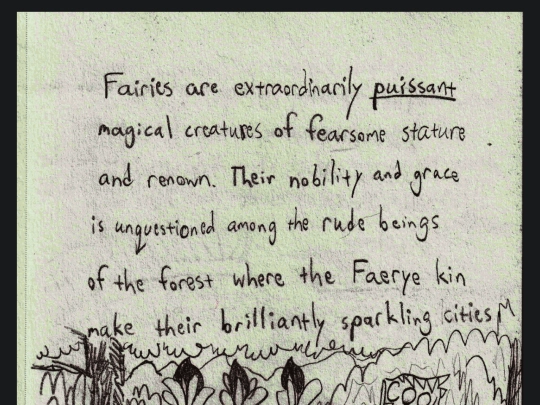 Fairies are extraordinarily puissant
magical creatures of fearsome stature
and renown. Their nobility and grace
is unquestioned among the rude beings
of the forest where the Faerye kin
make their brilliantly sparkling cities